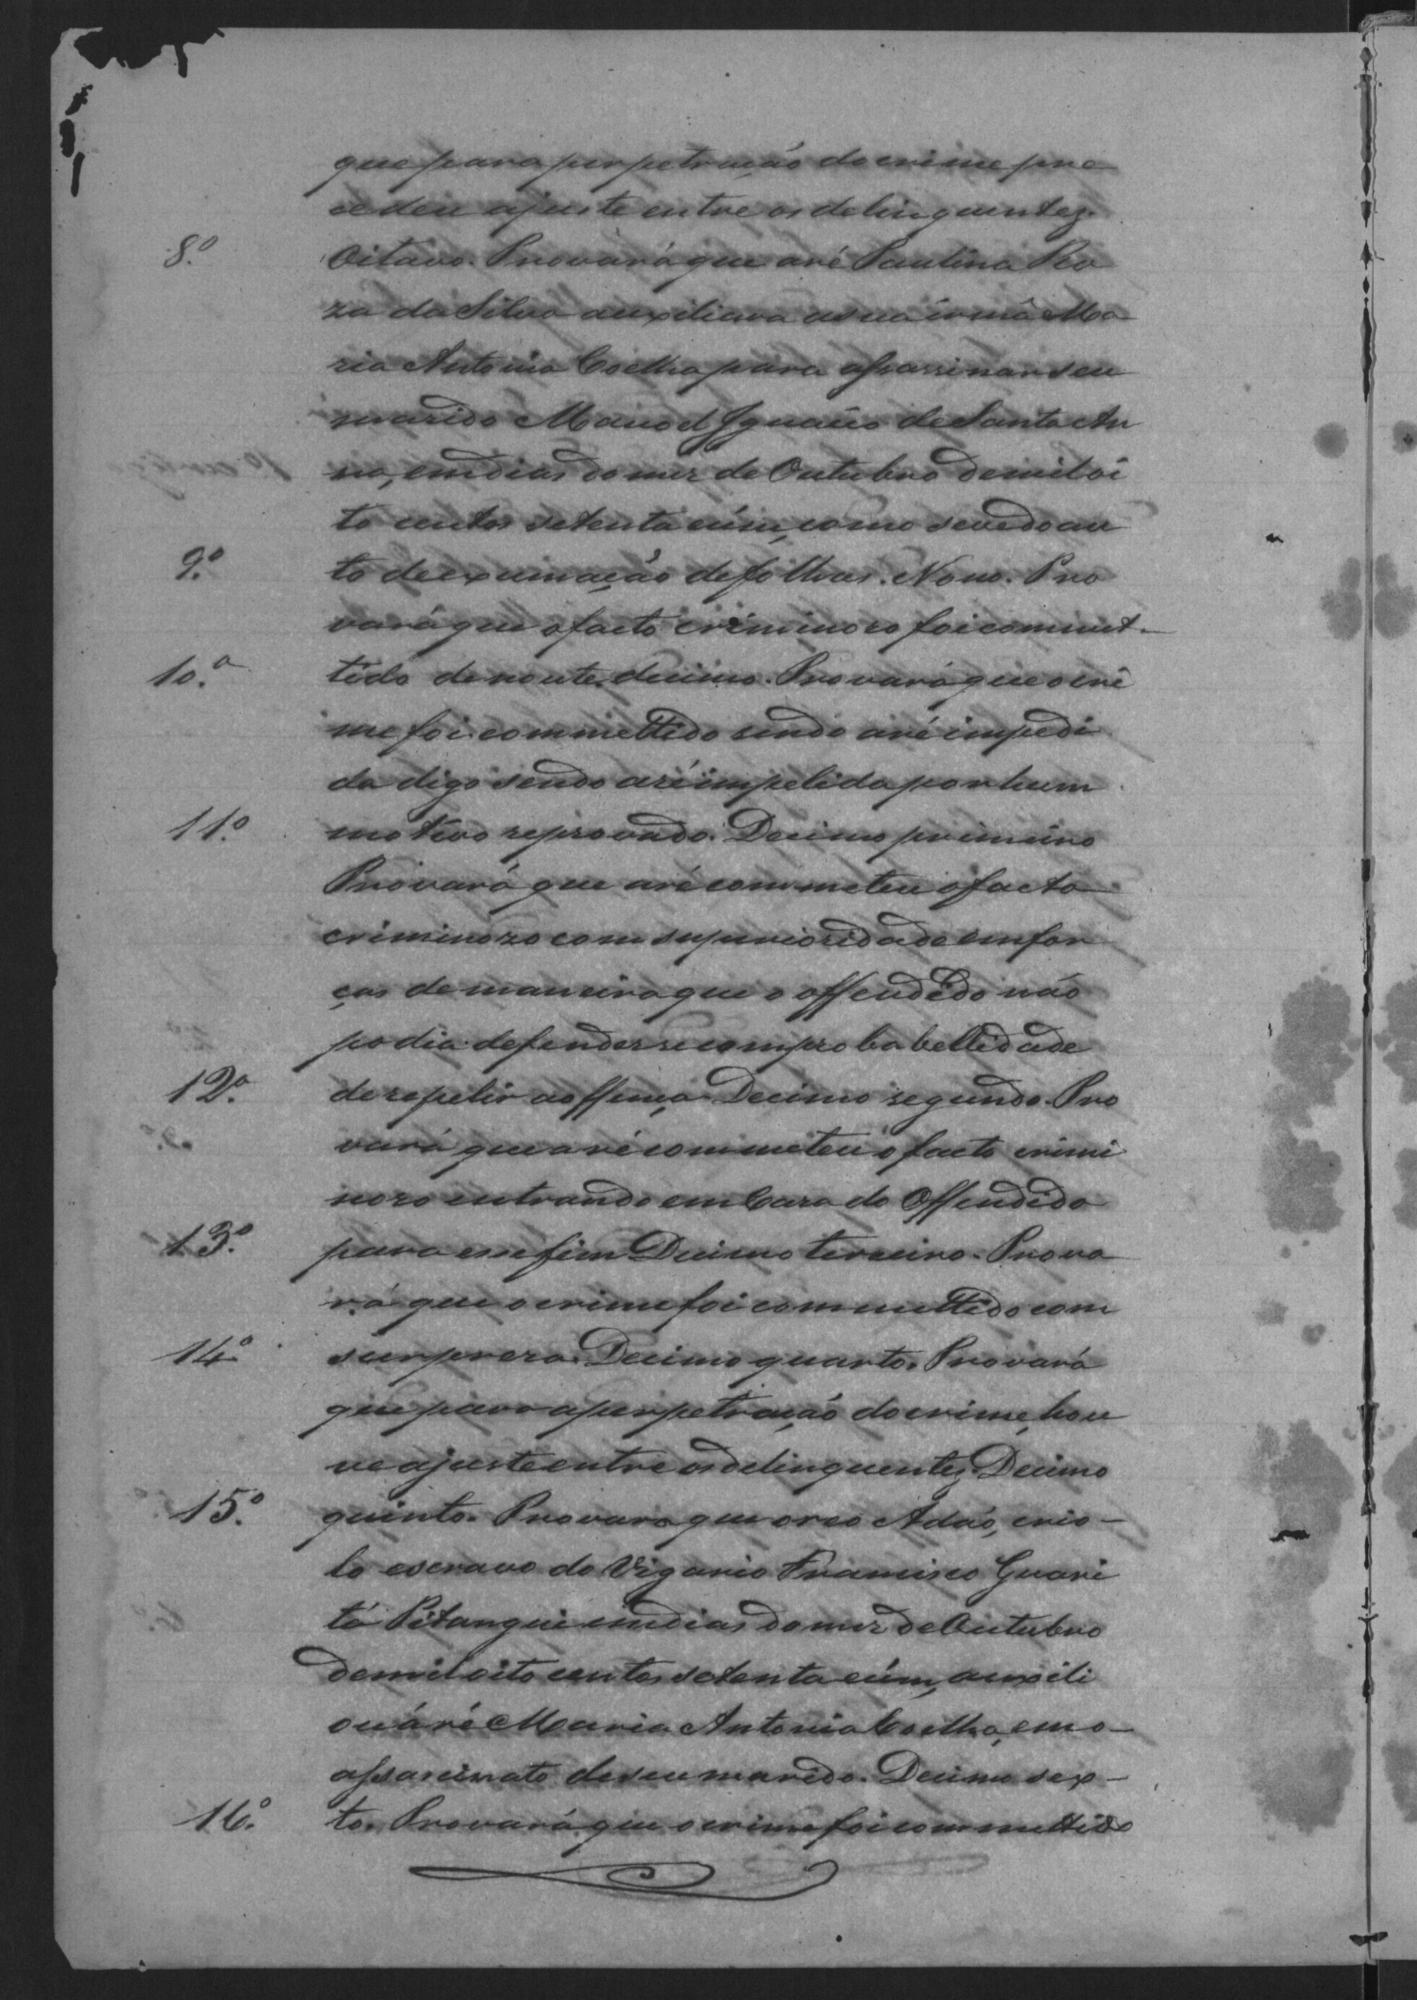 que para perpetração do crime pre
cedeu ajuste entre os delinquentes.
8.º Oitavo. Provará que a ré Paulina Ro
za da Silva auxiliava a sua irmã Ma
ria Antonia Coelha para assassinar seu
marido Manoel Ignacio de Santa An
na, em dias do mez de Outubro de mil oi
to centos setenta e úm, como se ve do au
9.º to de exumação de folhas. Nono. Pro
vará que o facto criminoso foi commet-
10.º tido de noute. decimo. Provará que o cri
me foi commettido sendo a ré impedi
da digo sendo a ré impelida por hum
11.º motivo reprovado. Decimo primeiro
Provará que a ré commeteu o facto
criminozo com superioridade em for
ças de maneira que o offendido não
podia defender se com probabellidade
12.º de repelir a offença. Decimo segundo. Pro
vará que a ré commeteu o facto crimi
nozo entrando em Caza do Offendido
13.º para esse fim Decimo terceiro. Prova
rá que o crime foi commettido com
14.º surpreza. Decimo quarto. Provará
que para a perpetração do crime, hou
ve ajuste entre os delinquentes. Decimo
15.º quinto. Provara que o reo Adão, crio-
lo escravo do Vigario Francisco Guari
tá Pitangui em dias do mez de Outubro
de mil oito centos setenta e úm, auxili
ou á ré Maria Antonia Coelha, em o
assascinato de seu marido. Decimo sex-
16.º to. Provará que o crime foi commettido